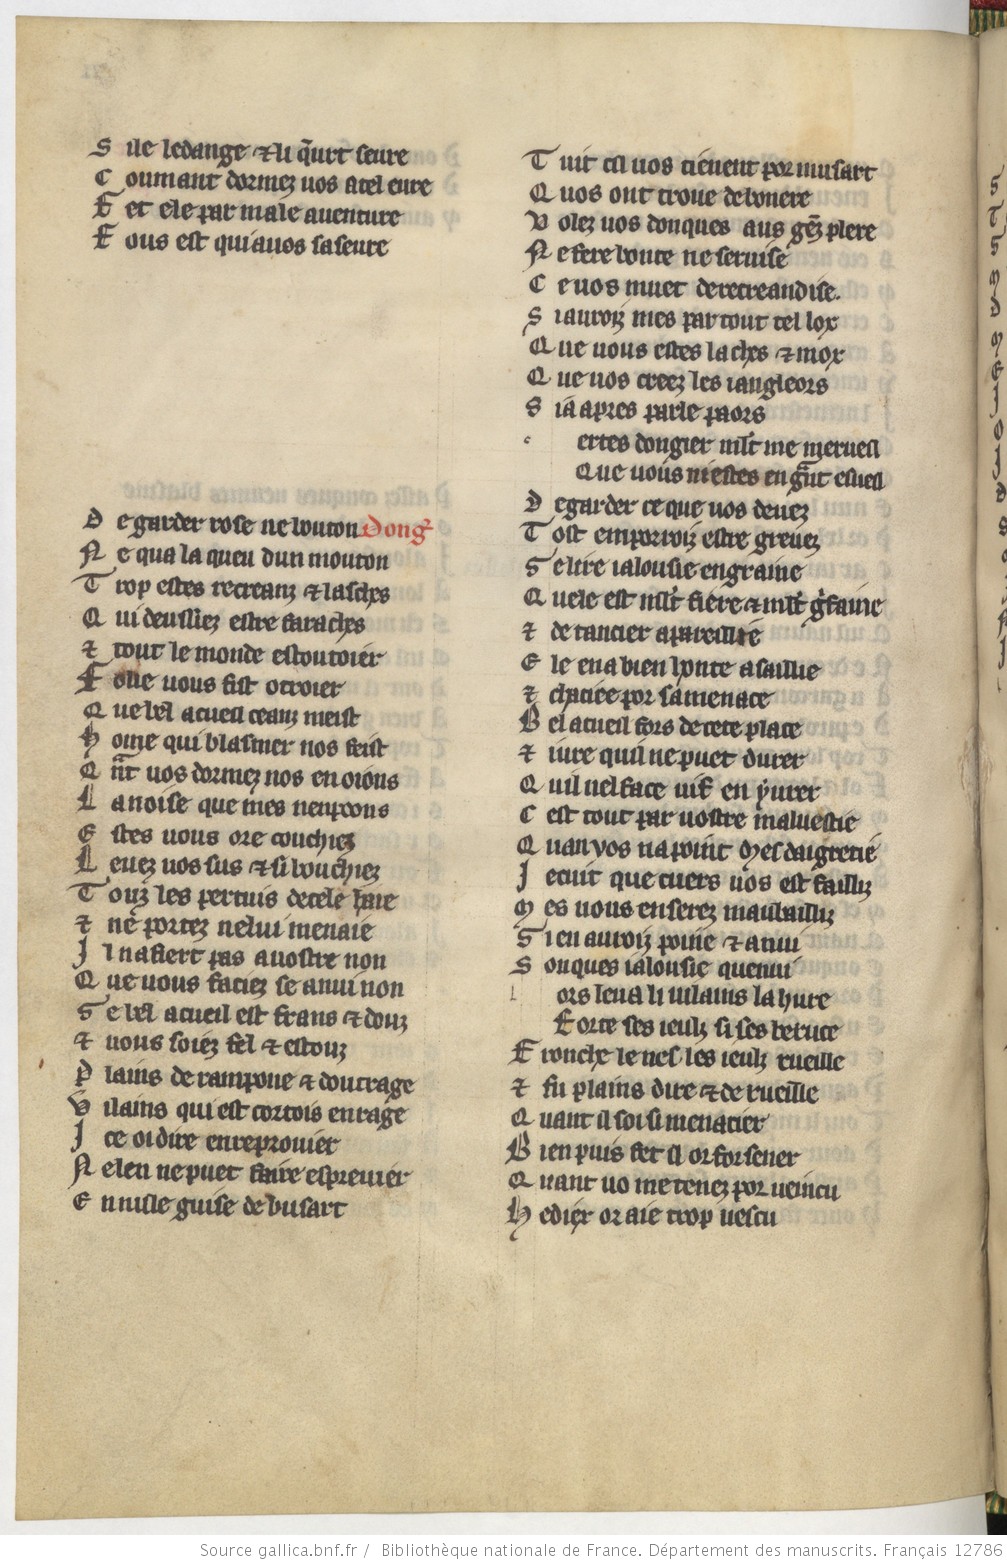 S ile ledange ⁊ li q̃urt seure
C oumant dormez vos a tel eure
F et ele par male auenture
F ous est qui a vos saseure
D e garder rose ne bouton Dong᷑
N e qua la queu dun mouton
T rop estes recreanz ⁊ lasches
Q ui deussiez estre farasches
⁊ tout le monde estoutoier
F olie vous fist otroier
Q ue bel acueil ceanz meist
H ome qui blasmer nos feist
Q ñt vos dormez nos en oions
L a noise que mes nen poons
E stes vous ore couchiez
L euez vos sus ⁊ si bouchiez
T ouz les pertuis de cele haie
⁊ ne portez ne lui menaie
I l nafiert pas a vostre non
Q ue vous faciez se anui non
S e bel acueil est frans ⁊ douz
⁊ vous soiez fel ⁊ estouz
P lains de rampone ⁊ doutrage
V ilains qui est cortois enrage
I ce oi dire en reprouier
N e len ne puet faire espreuier
E n nule guise de busart
T uit cil vos tienent por musart
Q uos ont troue debonere
V olez vos donques aus gẽz plere
N e fere bonte ne seruise
C e vos muet de recreandise.
S i auroiz mes par tout tel lox
Q ue vous estes lasches ⁊ mox
Q ue vos creez les iangleors
S ia apres parle paors
c ertes dongier ml̃t me merueil
Que vous niestes en g̃nt esueil
D e garder ce que vos deuez
T ost em porroiz estre greuez
S e lire ialousie engraine
Q uele est ml̃t fiere ⁊ ml̃t g̃faine
⁊ de tancier apareillie
E le en a bien honte asaillie
⁊ chaciee por sa menace
B el acueil fors de cete place
⁊ iure quil ne puet durer
Q uil nel face vif en ẏurer
C est tout par vostre maluestie
Q uan vos na point mes daigretie
J e cuit que cuers vos est failliz
M es vous en serez maubailliz
S i en auroiz poine ⁊ anui
S onques ialousie quenui
l ors leua li uilains la hure
Forte ses ieulz si ses beruce
F ronche le nes les ieulz rueille
⁊ fu plains dire ⁊ de rueille
Q uant il soi si menacier
B ien puis fet il or forsener
Q uant vo me tenez por veincu
H e diex or aie trop vescu
Source gallica.bnf.fr / Bibliothèque nationale de France. Département des manuscrits. Français 12786